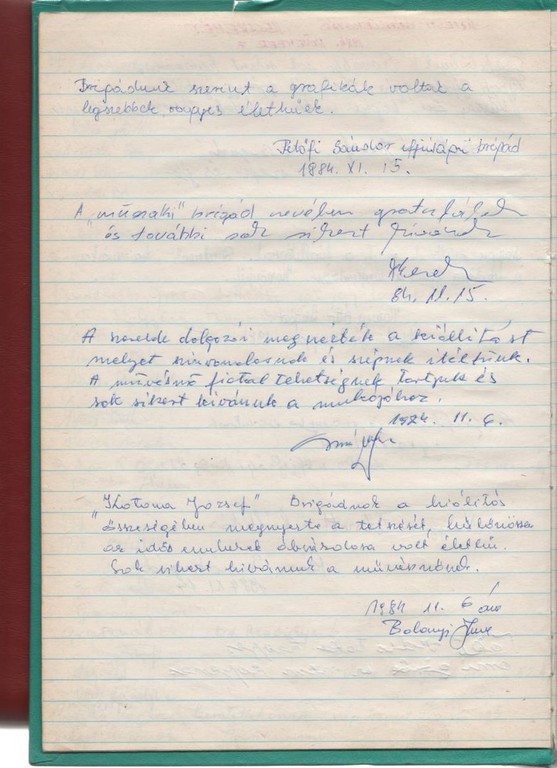 Brigádunk szerint a grafikák voltak a
legszebbek, nagyon élethűek.
Petőfi Sándor ifjúsági brigád
1984. XI. 15.
A "műszaki" brigád nevében gratulálok
és további sok sikert kívánok
84. 11. 15.
A dolgozói megnézték a kiállítást
melyet színvonalasnak és szépnek ítéltünk.
A művésznő fiatal tehetségnek tartjuk és
sok sikert kívánunk a munkájához.
1984. 11. 6.
"Katona József" Brigádnak a kiálitás
összeségében megnyerte a tetszését, különössen
az idős emberek ábrázolása volt élethű.
Sok sikert kivánunk a művésznőnek.
1984 11. 6 án